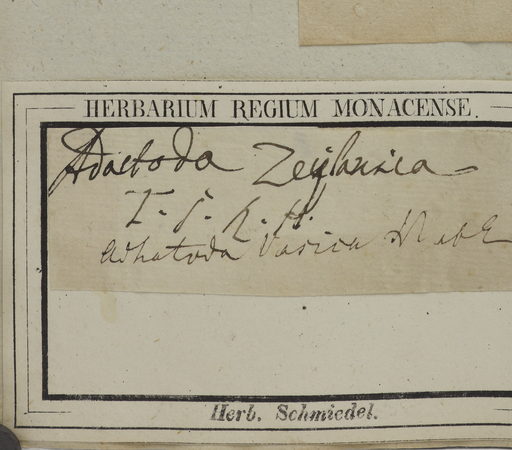 HERBARIUM REGIUM MONACENSE.
Adactoda Zeylanica
Adhatoda Vasica
Herb. Schmiedel.